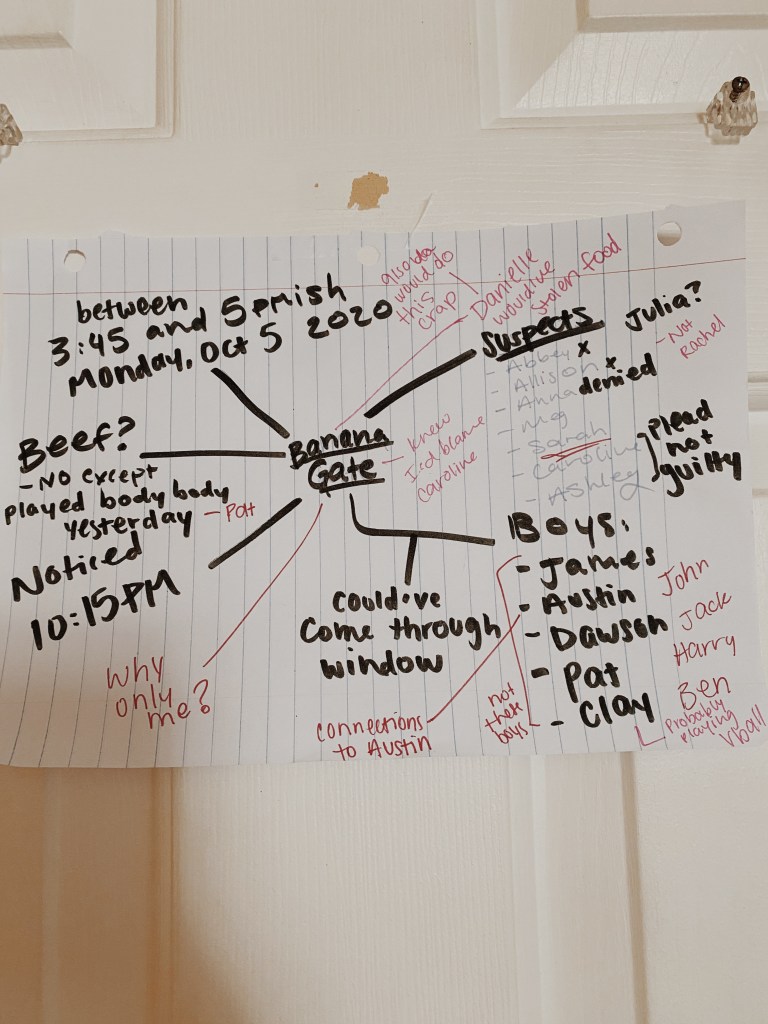 between
3:45 and 5pmish
Monday, Oct 5 2020
also
would do
this
crap
Danielle
would've
stolen food
Suspects
- Abbey x
- Allison x
- Anna denied
- Meg
- Sarah
- Caroline
- Ashley
plead
not
guilty
Julia?
- Not
Rachel
Beef?
- No except
played body body
yesterday - Pat
Banana
Gate
- knew
I'd blame
Caroline
Noticed
10:15PM
why
only
me?
could've
come through
window
connections
to Austin
Boys:
- James
- Austin
- Dawson
- Pat
- Clay
not
these
boys
John
Jack
Harry
Ben
Probably
playing
vball